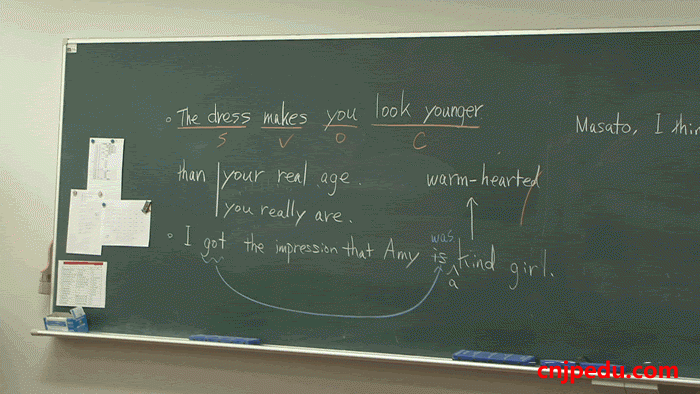 The dress makes you look younger
S V O C
than your real age.
you really are.
warm-hearted
was
I got the impression that Amy is kind girl.
a
Masato, I thin
cnjpedu.com